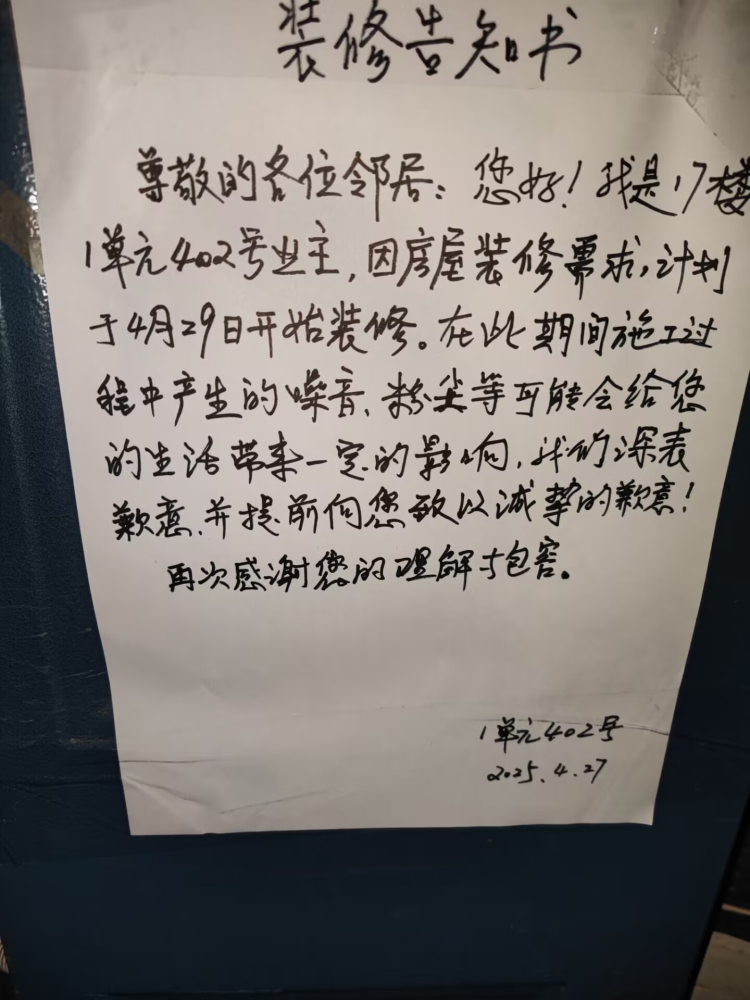 装修告知书
尊敬的各位邻居：您好！我是17楼
1单元402号业主，因房屋装修需求，计划
于4月29日开始装修。在此期间施工过
程中产生的噪音、粉尘等可能会给您
的生活带来一定的影响，我们深表
歉意，并提前向您致以诚挚的歉意！
再次感谢您的理解与包容。
1单元402号
2025.4.27